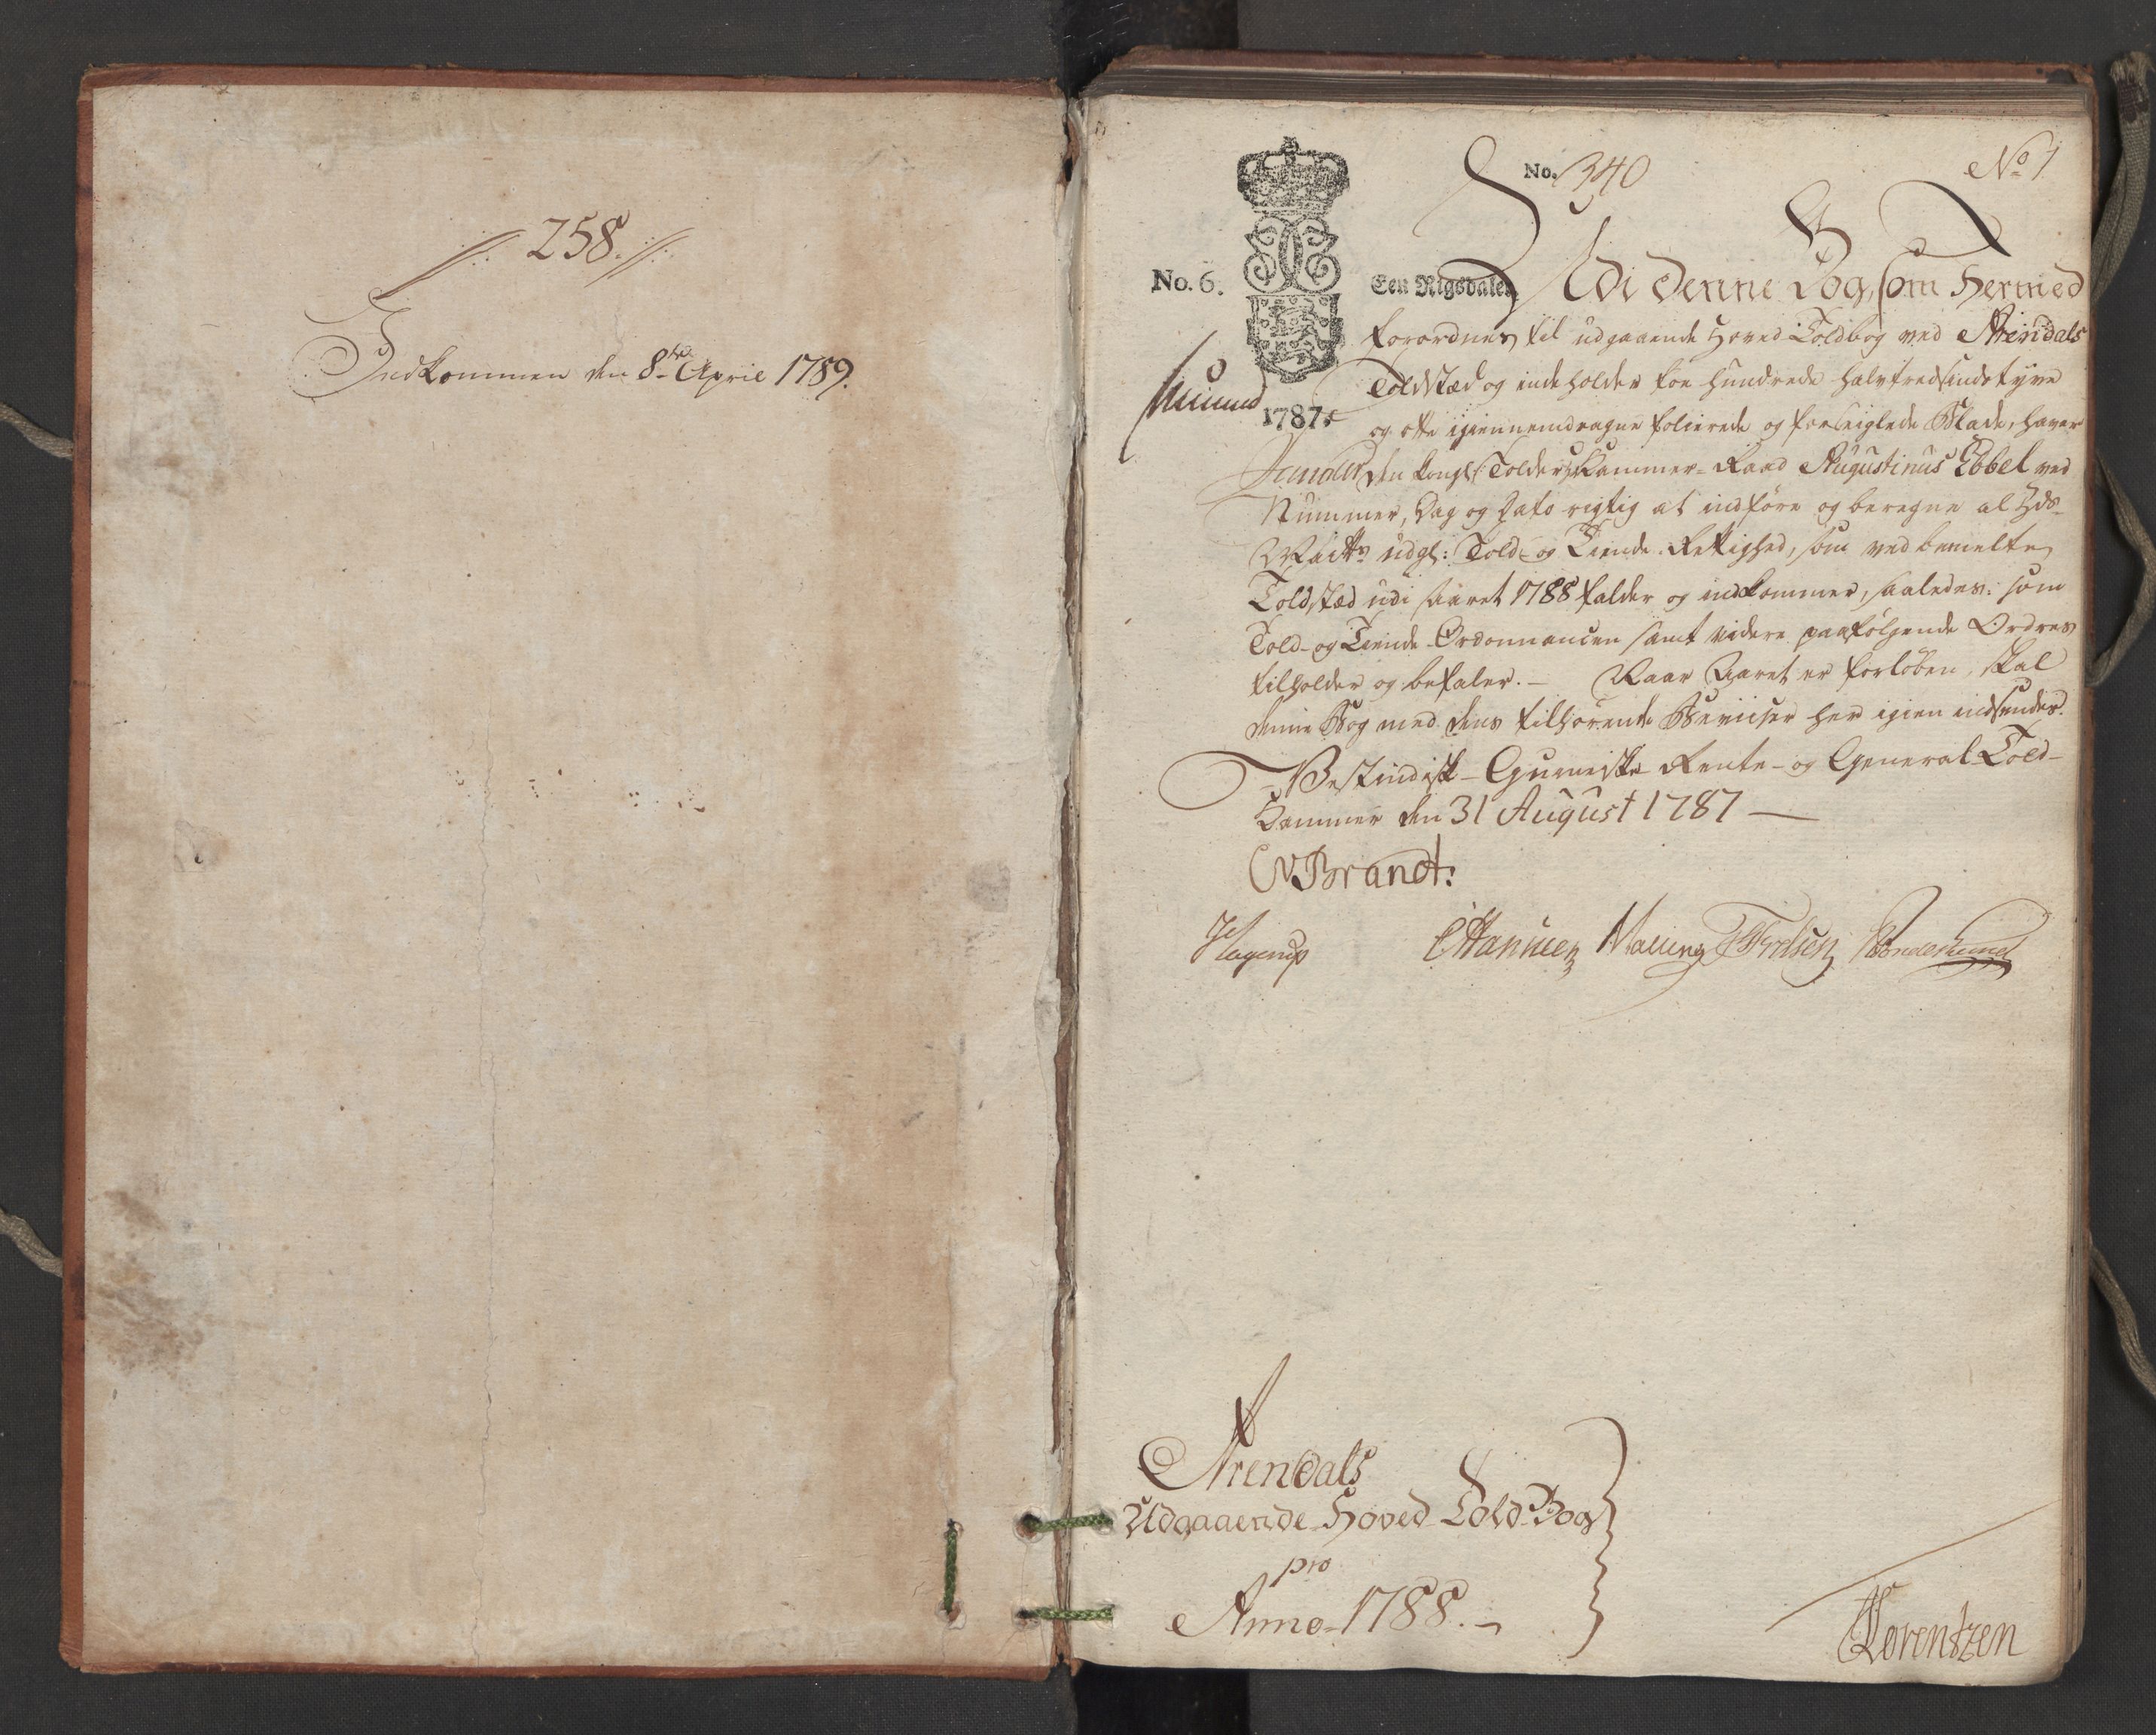 //: 258. //:
Indkommen den 8de Aprie 1789.
No. 340
No 1
No. 6.
Een Rigsdaler
1787.
Udi denne Bog, som hermed
forordnes til udgaaende Hoved-Toldbog ved Arendals
Toldstæd og indeholder toe hundrede halvtredsindstyve
og otte igiennemdragne folierede og forseiglede Blade, haver
den kongl: Tolder Kammer-Raad Augustinus Ebbel ved
Nummer, Dag og Dato rigtig at indføre og beregne al Hds
Maits udgl: Told- og Tiende-Rettighed, som ved bemelte
Toldstæd udi Aaret 1788 falder og indkommer, saaledes: som
Told- og Tiende-Ordonnancen samt videre paafølgende Ordres
tilholder og befaler. – Naar Aaret er forløben, skal
denne Bog med dens tilhørende Beviiser her igien indsendes.
Vestindisk-Guineiske Rente- og General-Told-
Kammer den 31 August 1787 —
CVBrandt:
Hagerup Malling
Arendals
Udgaaende Hoved Told-Bog
pro
Anno 1788. –
Lorentzen